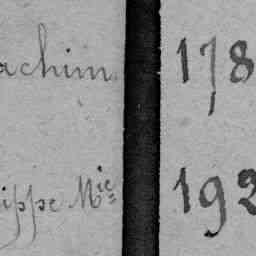 achim 178
ippe Mie 192